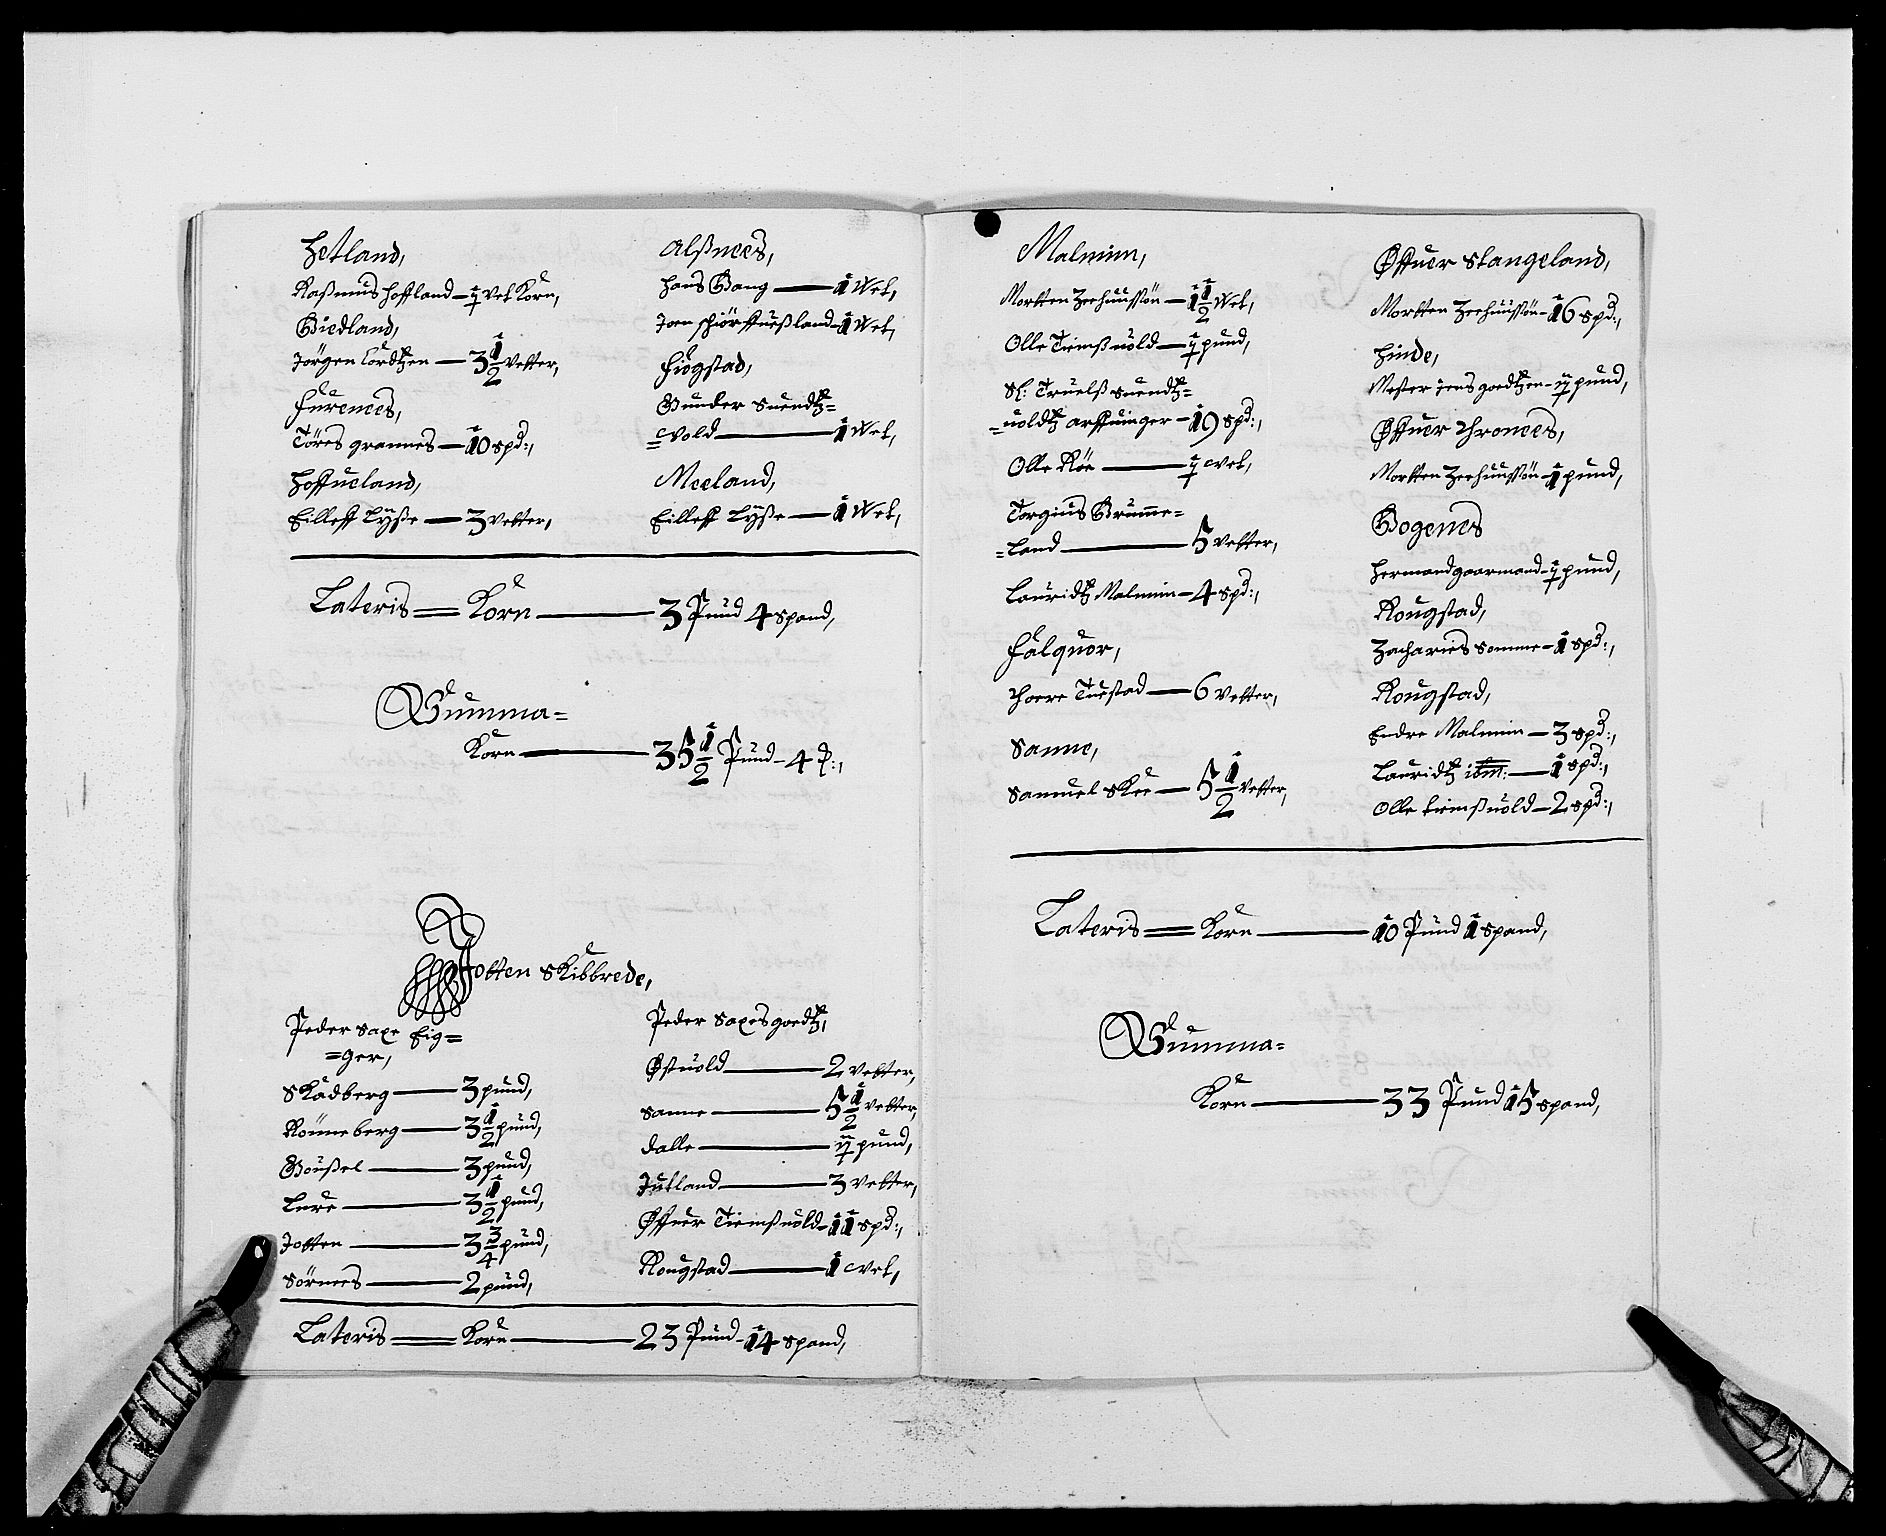 Hetland,
Raßmus Hoffland — ÿ Vet Korn,
Giedland,
Jörgen Cordtzen — 3 1/2 Vetter,
Furenees,
Töres grannes — 10 spd:,
Hoffueland,
Eilleff Lÿße — 3 Vetter,
Alßnees,
Hans Gang — 1 Wet,
Joen Schiörffueßland — 1 Wet,
Fiogstad,
Gunder Suendtz=
=vold — 1 Wet,
Meeland,
Eilleff Lÿße — 1 Wet,
Lateris = Korn — 3 Pund 4 Spand,
Summa=
Korn — 35 1/2 Pund - 4 P:,
Jotten Skibbrede,
Peder Saxe Eig=
=ger,
Skadberg — 3 pund,
Rönneberg — 3 1/2 pund,
Goußel — 3 pund,
Lure — 3 1/2 pund,
Jotten — 3 3/4 pund,
Sörnees — 2 pund,
Peder Saxes goedtz,
Østuold — 2 Vetter,
Sanne — 5 1/2 Vetter,
Dalle — ÿ pund,
Jutland — 3 Vetter,
Øffuer Tiemßuold — 11 spd:,
Rougstad — 1 Vet,
Lateris = Korn — 23 Pund - 14 Spand,
Malmim,
Mortten Zeehuussön — 1 1/2 Wet,
Olle Tiemßuold — ÿ pund,
Sl: Truelß Suendtz=
=uoldtz arffuinger — 19 spd:,
Olle Röe — ÿ Vet,
Torgius Grumme=
=land — 5 Vetter,
Lauridtz Malmim — 4 spd:,
Falquor,
Thore Tuestad — 6 Vetter,
Sanne,
Samuel Skee — 5 1/2 Vetter,
Øffuer Stangeland,
Mortten Zeehuussön — 16 spd:,
Hinde,
Mester Jens goedtzen — ÿ pund,
Øffuer Thronees,
Mortten Zeehuussön — 1 pund,
Bogenes
Hermand gaarmand — ÿ pund,
Rougstad,
Zacharies Somme — 1 spd:,
Rougstad,
Endre Malmim — 3 spd:,
Lauridtz ibm: — 1 spd:,
Olle tiemßuold — 2 spd:,
Lateris = Korn — 10 Pund 1 Spand,
Summa=
Korn — 33 Pund 15 Spand,